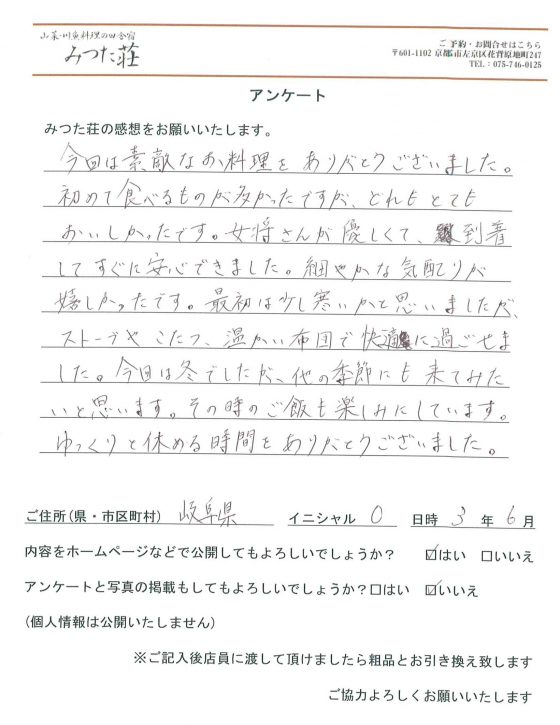 山菜・川魚料理の田舎宿
みつた荘
ご予約・お問合せはこちら
〒601-1102 京都市左京区花脊原地町247
TEL：075-746-0125
アンケート
みつた荘の感想をお願いいたします。
今回は素敵なお料理をありがとうございました。
初めて食べるものが多かったですが、どれもとても
おいしかったです。女将さんが優しくて、到着
してすぐに安心できました。細やかな気配りが
嬉しかったです。最初は少し寒いかと思いましたが、
ストーブやこたつ、温かい布団で快適に過ごせま
した。今回は冬でしたが、他の季節にも来てみた
いと思います。その時のご飯も楽しみにしています。
ゆっくりと休める時間をありがとうございました。
ご住所(県・市区町村) 岐阜県 イニシャル O 日時 3 年 6 月
内容をホームページなどで公開してもよろしいでしょうか？ ☑はい □いいえ
アンケートと写真の掲載もしてもよろしいでしょうか？□はい ☑いいえ
(個人情報は公開いたしません)
※ご記入後店員に渡して頂けましたら粗品とお引き換え致します
ご協力よろしくお願いいたします